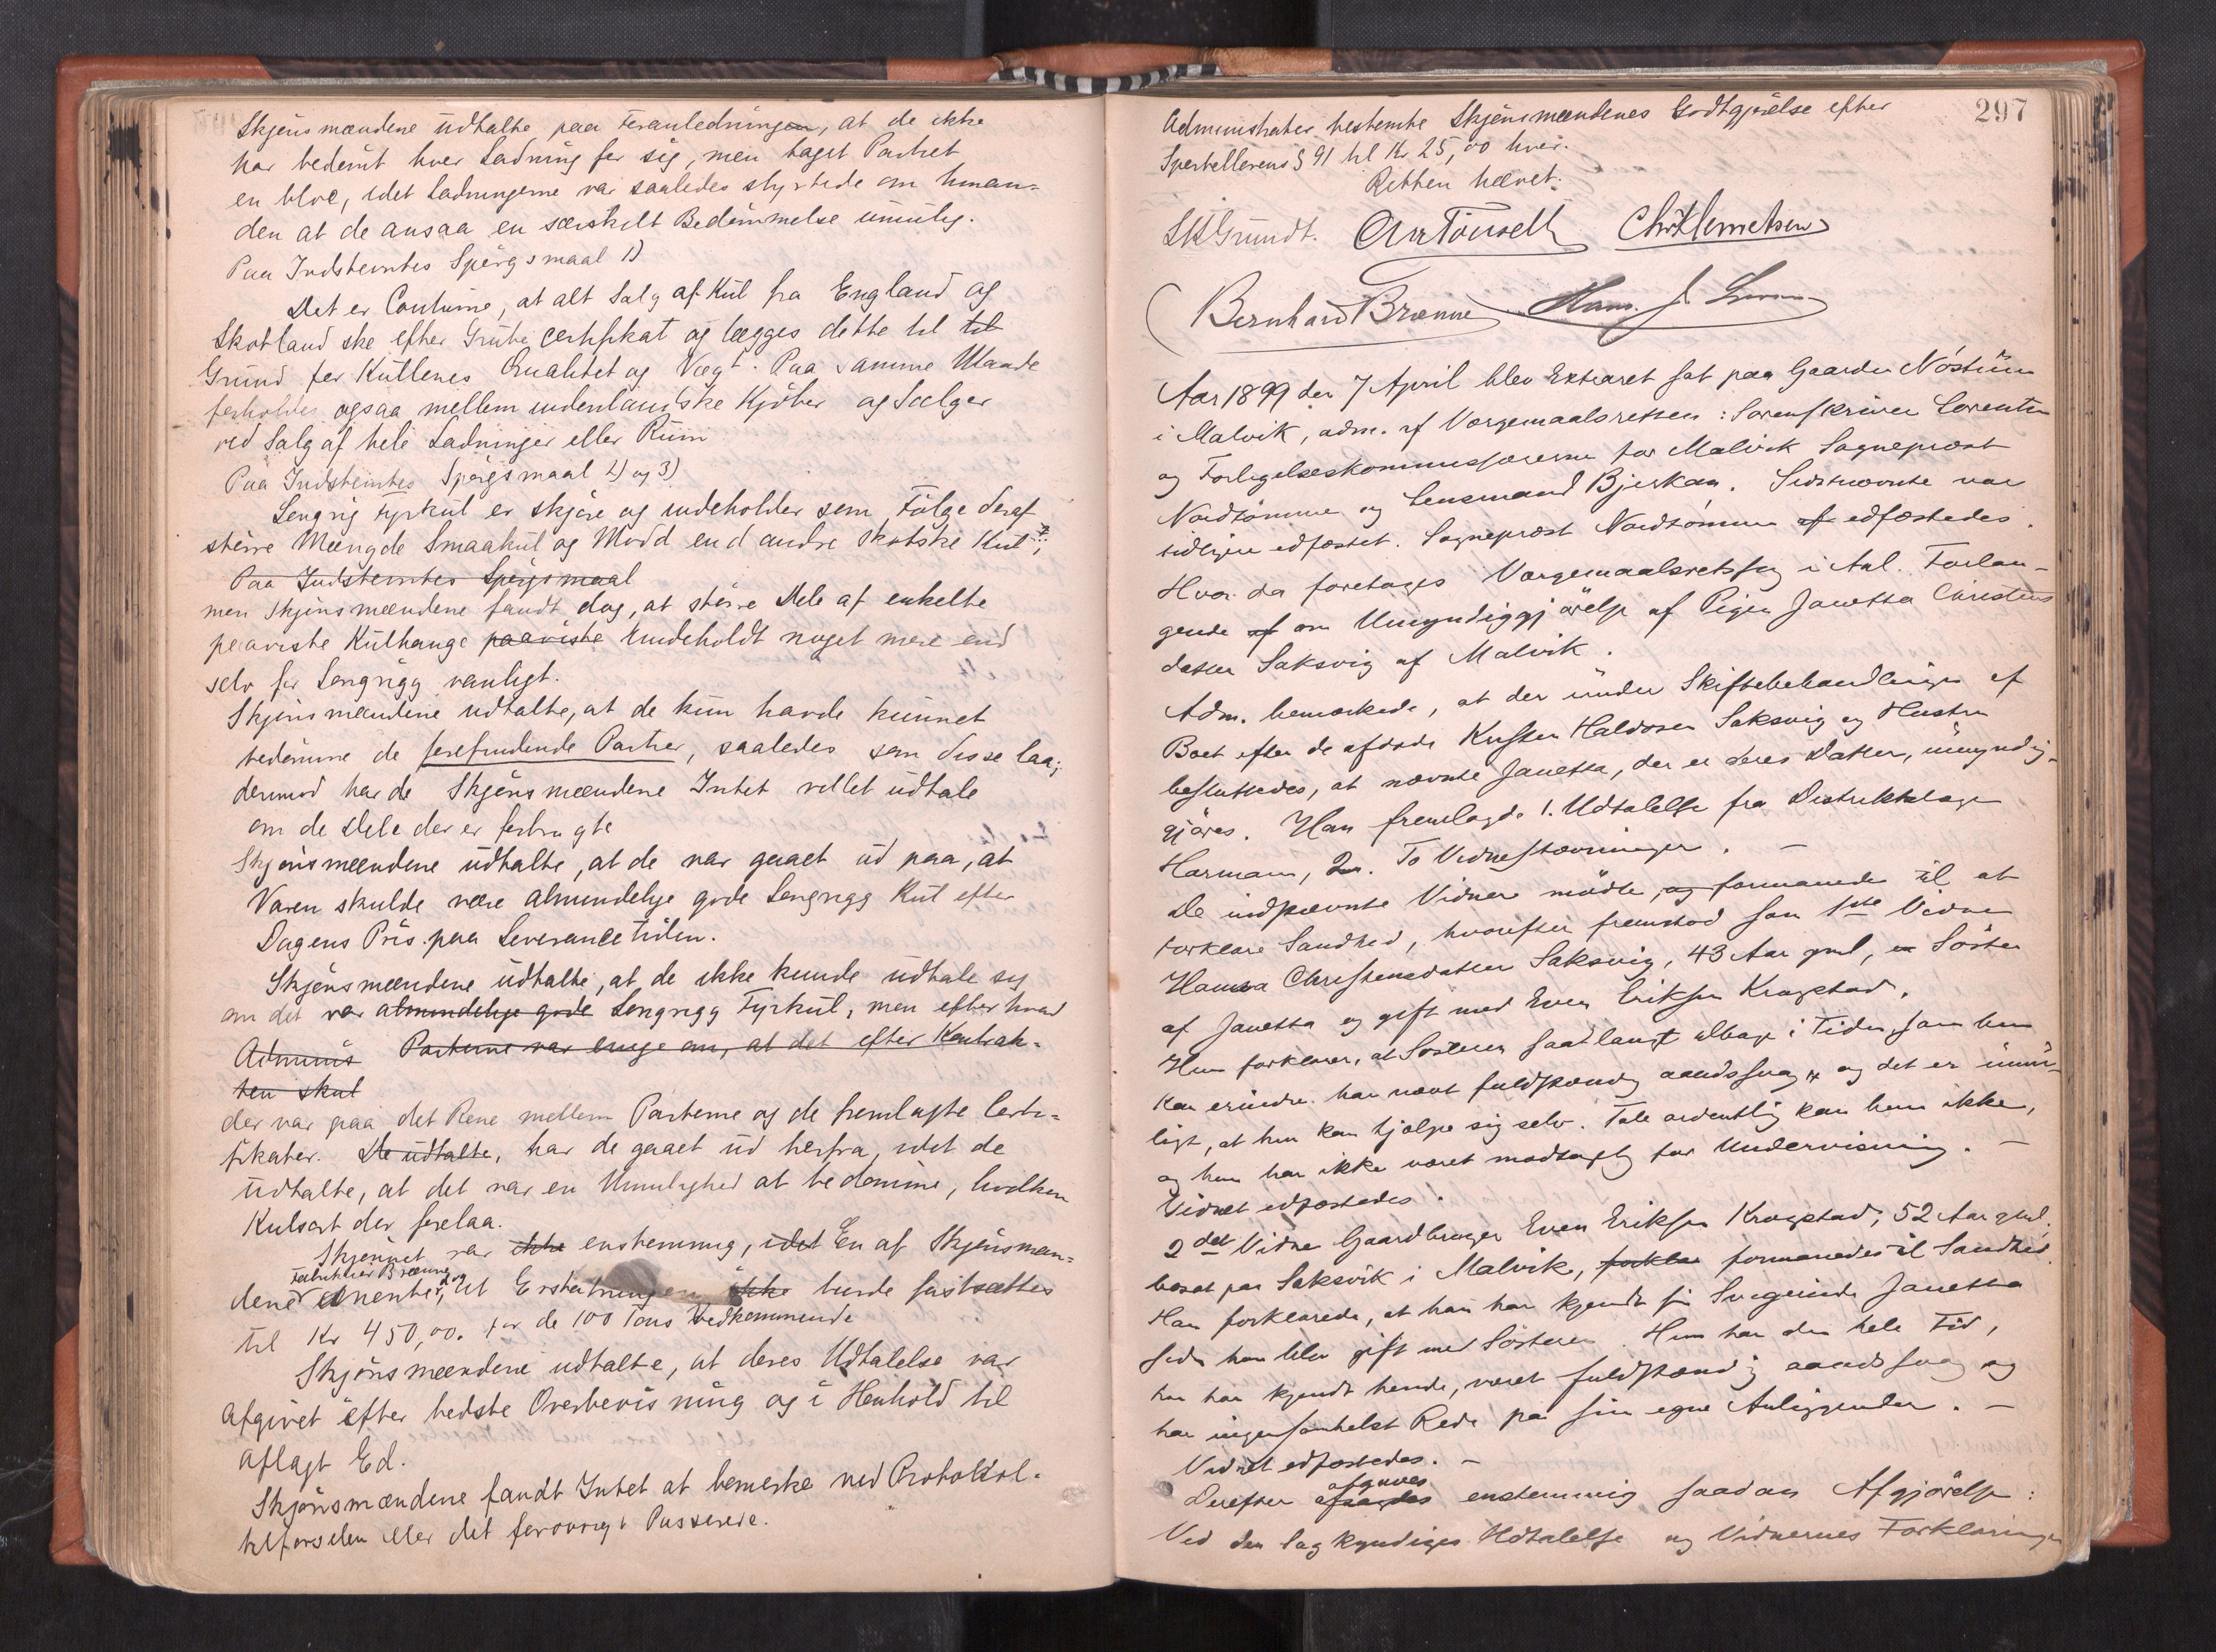 Skjønsmændene udtalte paa Foranledningen, at de ikke
har bedømt hver Ladning for sig, men taget Partiet
en bloc, idet Ladningerne var saaledes styrtede om hinan-
den at de ansaa en særskilt Bedømmelse umulig.
Paa Indstevntes Spørgsmaal 1)
Det er Coutume, at alt Salg af Kul fra England og
Skotland ske efter Grube certifikat og lægges dette til til
Grund for Kullenes Qualitet og Vægt. Paa samme Maade
forholdes ogsaa mellem indenlandske Kjøber og Sælger
ved Salg af hele Ladninger eller Rum
Paa Indstevntes Spørgsmaal 2) og 3)
Longrig Fyrkul er skjøre og indeholder som Følge deraf
større Mængde Smaakul og Modd end andre skotske Kul,
Paa Indstevntes Spørgsmaal
men Skjønsmændene fandt dog, at større Dele af enkelte
paaviste Kulhauge paaviste indeholdt noget mere end
selv for Longrigg vanligt.
Skjønsmændene udtalte, at de kun havde kunnet
bedømme de forefindende Partier, saaledes som disse laa;
derimod havde Skjønsmændene Intet villet udtale
om de Dele der er forbrugte
Skjønsmændene udtalte, at de var gaaet ud paa, at
Varen skulde være almindelige gode Longrigg Kul efter
Dagens Pris paa Leverancetiden.
Skjønsmændene udtalte, at de ikke kunde udtale sig
om det var almindelige gode Longrigg Fyrkul, men efter hvad
Adminis Parterne var enige om, at det efter Kontrak-
ten skul
der var paa det Rene mellem Parterne og de fremlagte Certi-
fikater. De udtalte, har de gaaet ud herfra, idet de
udtalte, at det var en Umulighed at bedømme, hvilken
Kulsort der forelaa.
Skjønnet var ikke enstemmig, idet En af Skjønsmæn-
Fabrikkeier Brænne dog
dene mente, at Erstatningen ikke burde fastsættes
til Kr 450,00. for de 100 Tons Vedkommende
Skjønsmændene udtalte, at deres Udtalelse var
afgivet efter bedste Overbevisning og i Henhold til
aflagt Ed.
Skjønsmændene fandt Intet at bemerke ved Protokol-
tilførselen eller det forøvrigt Passerede.
297
Administrator bestemte Skjønsmændenes Godtgjørelse efter
Sportellovens § 91 til Kr. 25,00 hver.
Retten hævet.
Grundt. Chr Klemetsen
Bernhard Brænne Hans J.
Aar 1899 den 7 April blev Extraret sat paa Gaarden Nöstum
i Malvik, adm. af Værgemaalsretten: Sorenskriver Lorentzen
og Forligelseskommissærerne for Malvik Sogneprest
Nordtömme og Lensmand Bjerkan. Sidstnævnte var
tidligere edfæstet. Sogneprest Nordtömme af edfæstedes.
Hvor da foretoges Værgemaalsretssag i Anl. Forlan-
gende af om Umyndiggjörelse af Pigen Janetta Christens
datter Saksvig af Malvik.
Adm. bemærkede, at der under Skiftebehandlingen af
Boet efter de afdøde Kristen Haldosen Saksvig og Hustru
besluttedes, at nævnte Janetta, der er deres Datter, umyndig-
gjöres. Han fremlagde 1. Udtalelse fra Distriktslæge
Harmann, 2. To Vidnestævninger. -
De indstævnte Vidner mödte, og formanede til at
forklare Sandhed, hvorefter fremstod som 1ste Vidne
Hanna Christensdatter Saksvig, 43 Aar gml, er Söster
af Janetta og gift med Even Eriksen Krogstad.
Hun forklarer, at Søsteren saa langt tilbage i Tiden som hun
kan erindre har været fuldstændig aandssvag og det er umu-
ligt, at hun kan hjælpe sig selv. Tale ordentlig kan hun ikke,
og hun har ikke været modtagelig for Undervisning. -
Vidnet edfæstedes.
2det Vidne Gaardbruger Even Eriksen Krogstad, 52 Aar gml.
bosat paa Saksvik i Malvik, forklar formanedes til Sandhed.
Han forklarede, at han har kjendt sin Svigerinde Janetta
siden han blev gift med Søsteren. Hun har den hele Tid,
han har kjendt hende, været fuldstændig aandssvag og
har ingensomhelst Rede paa sine egne Anliggender. -
Vidnet edfæstedes. -
afgaves
Derefter afsagdes enstemmig saadan Afgjörelse:
Ved den lagkyndiges Udtalelse og Vidnernes Forklaringer